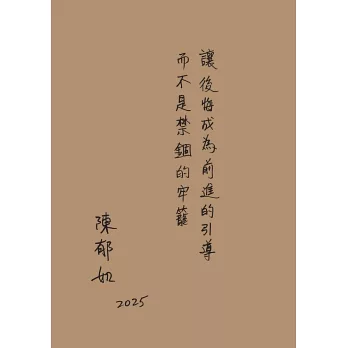 讓後悔成為前進的引導
而不是禁錮的牢籠
陳郁如
2025